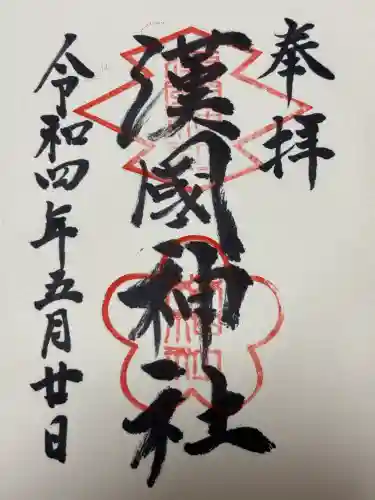 奉拝
漢國神社
令和四年五月廿日